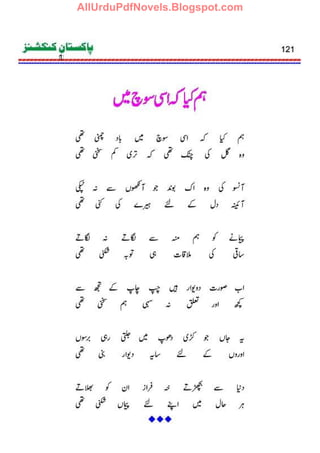 AllUrduPdfNovels.Blogspot.com
پاکستان کنکشنز
121
ہم ایک ہی سوچ میں
ہم ایک کہ اسی سوچ میں باد تھی
وہ گل کی تھی کہ تری کم تھی
آنسو کی وہ اک بوند جو آنکھوں سے نہ ٹپکی
آئینہ دل کے لئے ہیرے کی کنی تھی
پیمانے کو ہم منہ سے لگاتے نہ لگاتے
ساقی کی ملاقات ہی توبہ شکنی تھی
اب صورت دیوار ہیں چپ چاپ کے تجھ سے
کچھ اور تعلق نہ سہی ہم سخنی تھی
یہ جاں جو کڑی دھوپ میں جلتی رہی برسوں
اوروں کے لئے سایہ دیوار بنی تھی
دنیا سے بچھڑتے نہ فراز ان کو بھلاتے
ہر حال میں اپنے لئے پیماں شکنی تھی